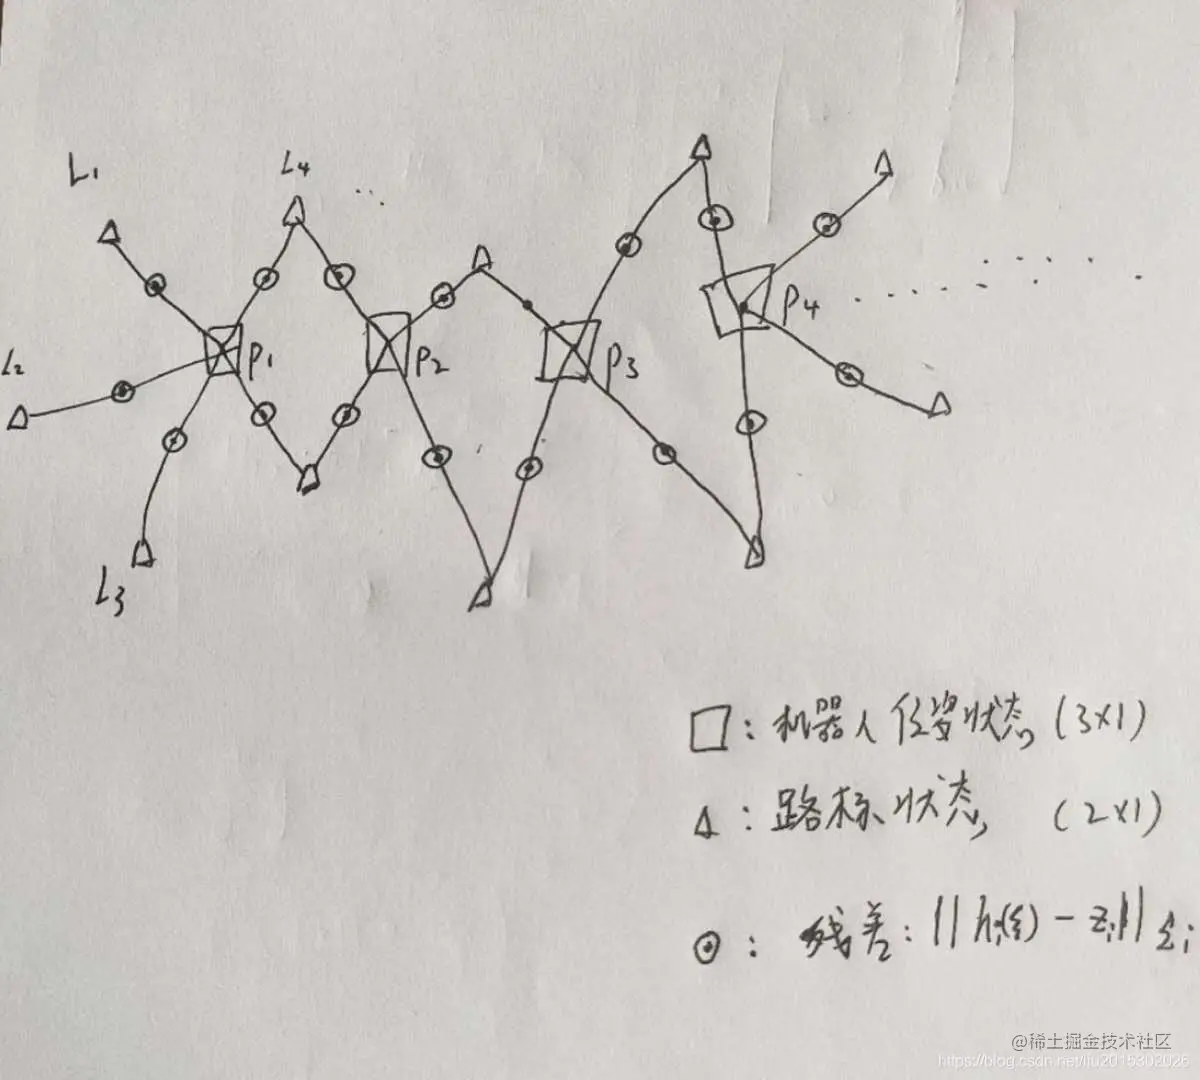 L₁
L₄
L₂
P₁
P₂
P₃
P₄
L₃
□：机器人位姿状态 (3×1)
△：路标状态 (2×1)
⊙：残差：||hᵢ(ξ) - zᵢ||Σᵢ
@稀土掘金技术社区
https://blog.csdn.net/ifu2015302026